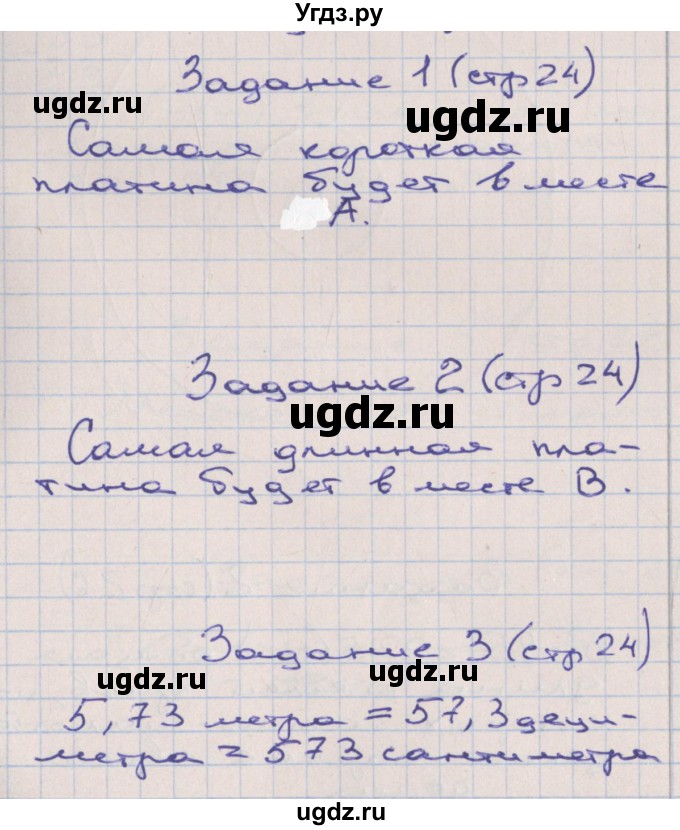 Угдз.ру
Задание 1 (стр 24)
ugdz.ru
ugdz.ru
Самая короткая
платина будет в месте
А.
Задание 2 (стр 24)
ugdz.ru
Самая длинная пла-
тина будет в месте В.
Задание 3 (стр 24)
ugdz.ru
ugdz.ru
5,73 метра = 57,3 деци-
метра = 573 сантиметра
ugdz.ru